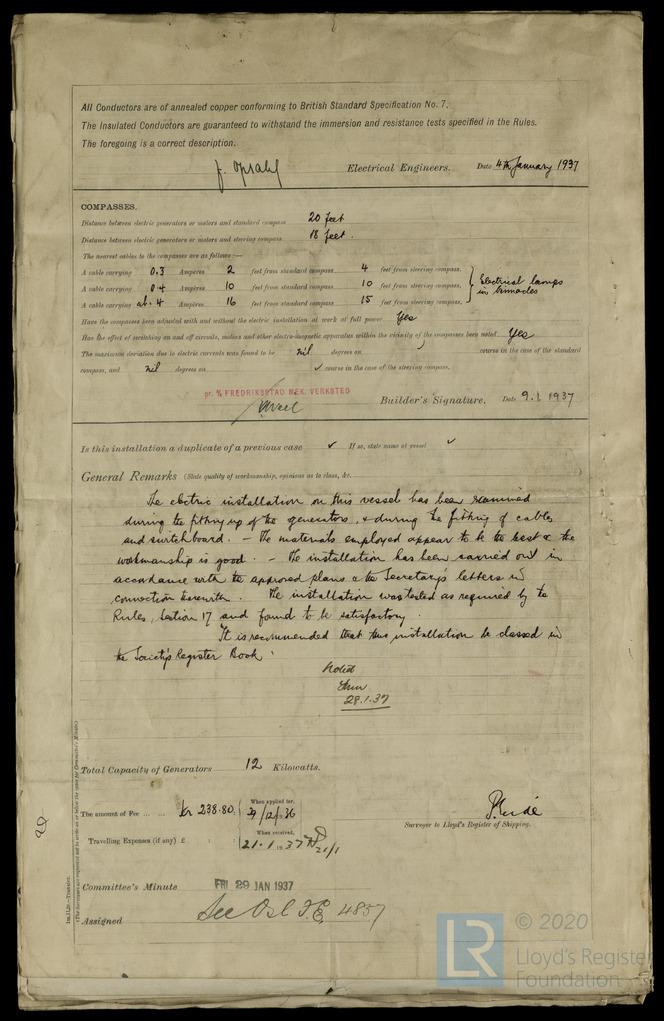 All Conductors are of annealed copper conforming to British Standard Specification No. 7.
The Insulated Conductors are guaranteed to withstand the immersion and resistance tests specified in the Rules.
The foregoing is a correct description.
Electrical Engineers. Date 4th January 1937
COMPASSES.
Distance between electric generators or motors and standard compass 20 feet
Distance between electric generators or motors and steering compass 18 feet.
The nearest cables to the compasses are as follows:—
A cable carrying 0.3 Ampères 2 feet from standard compass 4 feet from steering compass.
A cable carrying 0.4 Ampères 10 feet from standard compass 10 feet from steering compass.
A cable carrying ab. 4 Ampères 16 feet from standard compass 15 feet from steering compass.
Electrical lamps
in binnacles
Have the compasses been adjusted with and without the electric installation at work at full power Yes
Has the effect of switching on and off circuits, motors and other electro-magnetic apparatus within the vicinity of the compasses been noted Yes
The maximum deviation due to electric currents was found to be nil degrees on course in the case of the standard
compass, and nil degrees on ✓ course in the case of the steering compass.
pr. % FREDRIKSSTAD MEK. VERKSTED
Builder's Signature. Date 9.1.1937
Is this installation a duplicate of a previous case ✓ If so, state name of vessel ✓
General Remarks (State quality of workmanship, opinions as to class, &c.
The electric installation on this vessel has been examined
during the fitting up of the generators, & during the fitting of cables
and switchboard. — The materials employed appear to be the best & the
workmanship is good. — The installation has been carried out in
accordance with the approved plans & the Secretary's letters in
connection therewith. The installation was tested as required by the
Rules, Section 17 and found to be satisfactory
It is recommended that this installation be classed in
the Society's Register Book.
Noted
28.1.37
Total Capacity of Generators 12 Kilowatts.
The amount of Fee ... ... Kr 238.80. When applied for, 29/12/1936
Travelling Expenses (if any) £ When received, 21.1.1937 21/1
Surveyor to Lloyd's Register of Shipping.
Committee's Minute FRI 29 JAN 1937
Assigned See Osl F.E. 4857
(The Surveyors are requested not to write on or below the space for Committee's Minute.)
© 2020
LR
Lloyd's Register
Foundation